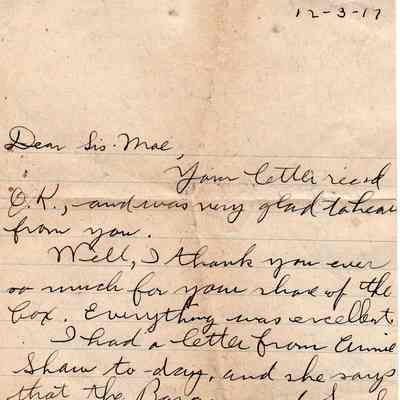 12-3-17
Dear Sis. Mae,
Your letter recd
O.K., and was very glad to hear
from you.
Well, I thank you ever
so much for your share of the
box. Everything was excellent.
I had a letter from Annie
Shaw to-day, and she says
that the